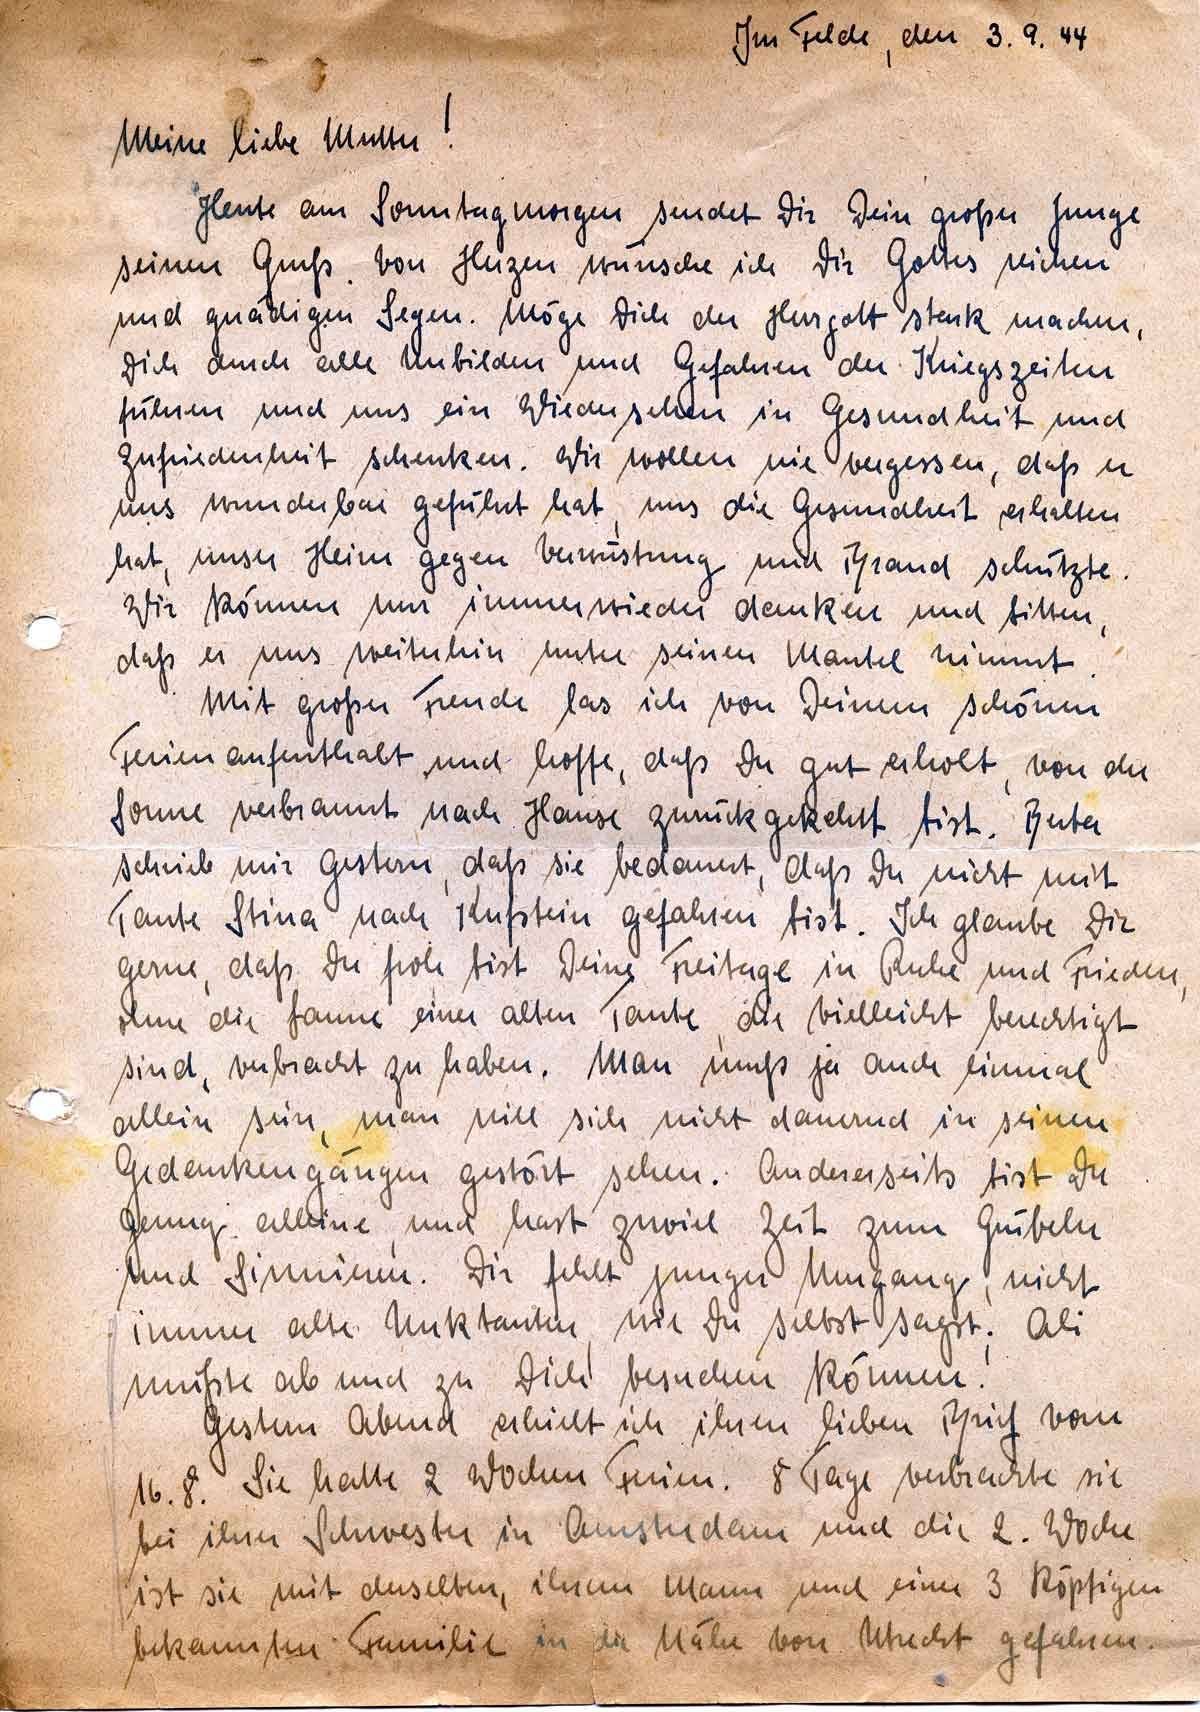 Im Felde, den 3.9.44
Meine liebe Mutter!
Heute am Sonntagmorgen sendet Dir Dein großer Junge
seinen Gruß. Von Herzen wünsche ich Dir Gottes reichen
und gnädigen Segen. Möge Dich der Herrgott stark machen,
Dich durch alle Unbilden und Gefahren der Kriegszeiten
führen und uns ein Wiedersehen in Gesundheit und
Zufriedenheit schenken. Wir wollen nie vergessen, daß er
uns wunderbar geführt hat, uns die Gesundheit erhalten
hat, unser Heim gegen Verwüstung und Brand schützte.
Wir können nur immerwieder danken und bitten,
daß er uns weiterhin unter seinen Mantel nimmt.
Mit großer Freude las ich von Deinem schönen
Ferienaufenthalt und hoffe, daß Du gut erholt, von der
Sonne verbrannt nach Hause zurückgekehrt bist.
schrieb mir gestern, daß sie bedauert, daß Du nicht mit
Tante Stina nach Kufstein gefahren bist. Ich glaube Dir
gerne, daß Du froh bist Deine Freitage in Ruhe und Frieden,
ohne die Laune einer alten Tante, die vielleicht berechtigt
sind, verbracht zu haben. Man muß ja auch einmal
allein sein, man will sich nicht dauernd in seinen
Gedankengängen gestört sehen. Andererseits bist Du
genug alleine und hast zuviel Zeit zum Grübeln
und Sinnieren. Dir fehlt junger Umgang, nicht
immer alte Unktanten, wie Du selbst sagst. Ali
müßte ab und zu Dich besuchen können!
Gestern Abend erhielt ich ihren lieben Brief vom
16.8. Sie hatte 2 Wochen Ferien. 8 Tage verbrachte sie
bei ihrer Schwester in Amsterdam und die 2. Woche
ist sie mit derselben, ihrem Mann und einer 3 köpfigen
bekannten Familie in die Nähe von Utrecht gefahren.